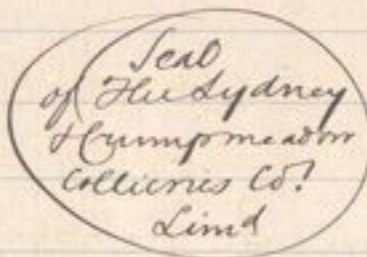 Seal
of The Sydney
& Crump meadow
Collieries Co!
Limd